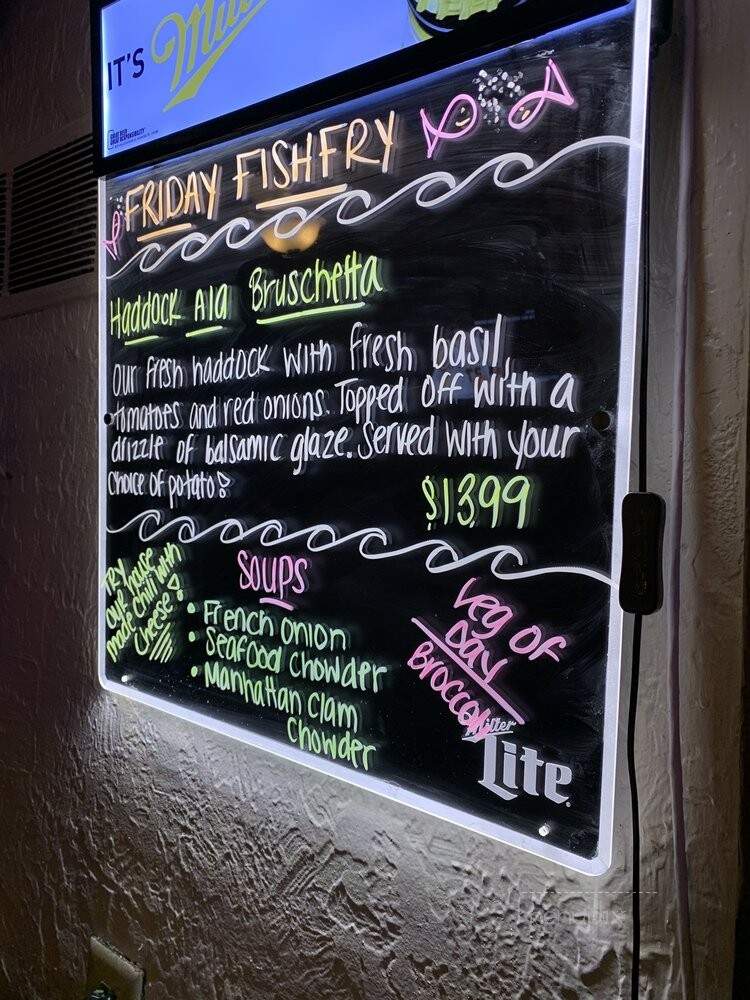 IT'S Miller
FRIDAY FISHFRY
Haddock Ala Bruschetta
Our fresh haddock with fresh basil,
tomatoes and red onions. Topped off with a
drizzle of balsamic glaze. Served with your
choice of potato!
$13.99
Try
our house
made chili with
cheese!
SOUPS
• French Onion
• Seafood Chowder
• Manhattan Clam
Chowder
Veg OF
DAY
Broccoli
Miller
Lite